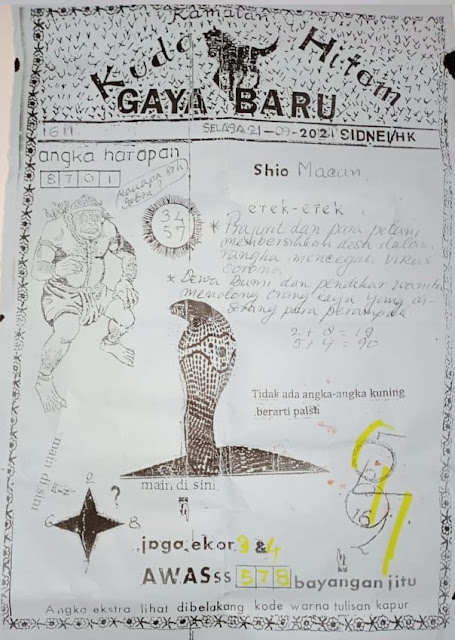 Ramalan
Kuda Hitam
GAYA BARU
SELASA 21-09-2021 SIDNEI/HK
angka harapan
8701
34
57
Shio Macan
erek-erek
* Prajurit dan para petani
membersihkan desh dalam
rangka mencegai virus
corona
* Dewa Bumi dan pendekar wanita
menolong orang kaya yang di-
serang para perampok
2 + 8 = 19
5 + 4 = 90
Tidak ada angka-angka kuning
berarti palsu
main disini
main di sini
2
?
6 8
jaga ekor 3 & 4
AWASss 578 bayangan jitu
Angka ekstra lihat dibelakang kode warna tulisan kapur